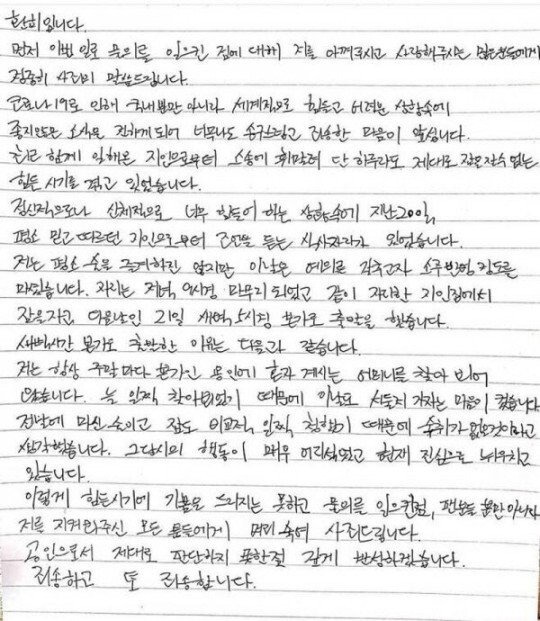 환희입니다.
먼저 이번 일로 물의를 일으킨 점에 대해 저를 아껴주시고 사랑해주시는 많은분들에게
정중히 사과의 말씀드립니다.
코로나19로 인해 국내뿐만 아니라 세계적으로 힘들고 어려운 상황속에
좋지않은 소식을 전하게되어 너무나도 송구스럽고 죄송한 마음이 앞섭니다.
최근 함께 일해온 지인으로부터 소송에 휘말려 단 하루라도 제대로 잠을 잘수 없는
힘든 시기를 겪고 있었습니다.
정신적으로나 신체적으로 너무 힘들어 하는 상황속에 지난 20일,
평소 믿고 따르던 지인으로부터 조언을 듣는 식사자리가 있었습니다.
저는 평소 술을 즐겨하진 않지만 이날은 예의를 갖추고자 소주 반병 정도를
마셨습니다. 자리는 저녁 9시경 마무리 되었고 같이 자리한 지인집에서
잠을 자고, 다음날인 21일 새벽 5시경 본가로 출발을 했습니다.
새벽시간 본가로 출발한 이유는 다음과 같습니다.
저는 항상 주말마다 본가인 용인에 혼자 계시는 어머니를 찾아 뵈어
왔습니다. 늘 일찍 찾아뵈었기 때문에 이날도 서둘러 가자는 마음이 컸습니다
전날에 마신 술이고 잠도 비교적 일찍 청했기 때문에 숙취가 없을것이라고
생각했습니다. 그 당시의 행동이 매우 어리석었고 현재 진심으로 뉘우치고
있습니다.
이렇게 힘든시기에 기쁨을 드리지는 못하고 물의를 일으킨점, 팬분들 뿐만 아니라
저를 지켜봐주신 모든 분들에게 머리 숙여 사죄드립니다.
공인으로서 제대로 판단하지 못한점 깊게 반성하겠습니다.
죄송하고 또 죄송합니다.